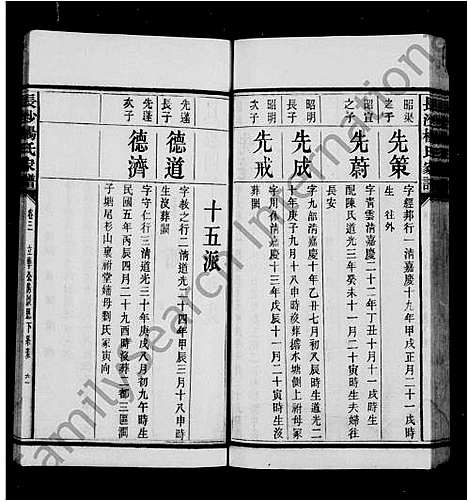 長沙楊氏家譜
昭渠之子
先策
字經邦行一清嘉慶十九年甲戌正月二十一戌時
生往外
昭宣之子
先蔚
字青雲清嘉慶二十二年丁丑十月十一戌時生
配陳氏道光三年癸未十一月二十寅時生夫婦往
長安
昭明長子
先成
字九部清嘉慶十年乙丑七月初八辰時生道光二
十年庚子九月十八申時沒葬擔水塘側上祖母冢
昭明次子
先戒
字川
清嘉慶十三年
十一月二十寅時生沒
葬闕
十五派
先瑾長子
德道
字敎之行二清道光二十四年甲辰三月十八申時
生沒葬闕
先瑾次子
德濟
字守仁行三清道光三十年庚戌八月初九午時生
民國五年丙辰四月二十九酉時沒葬一都三區澗
子塘尾杉山裏祔堂嬸母劉氏冢寅向
長沙楊氏家譜
卷三
六一
Familysearch International